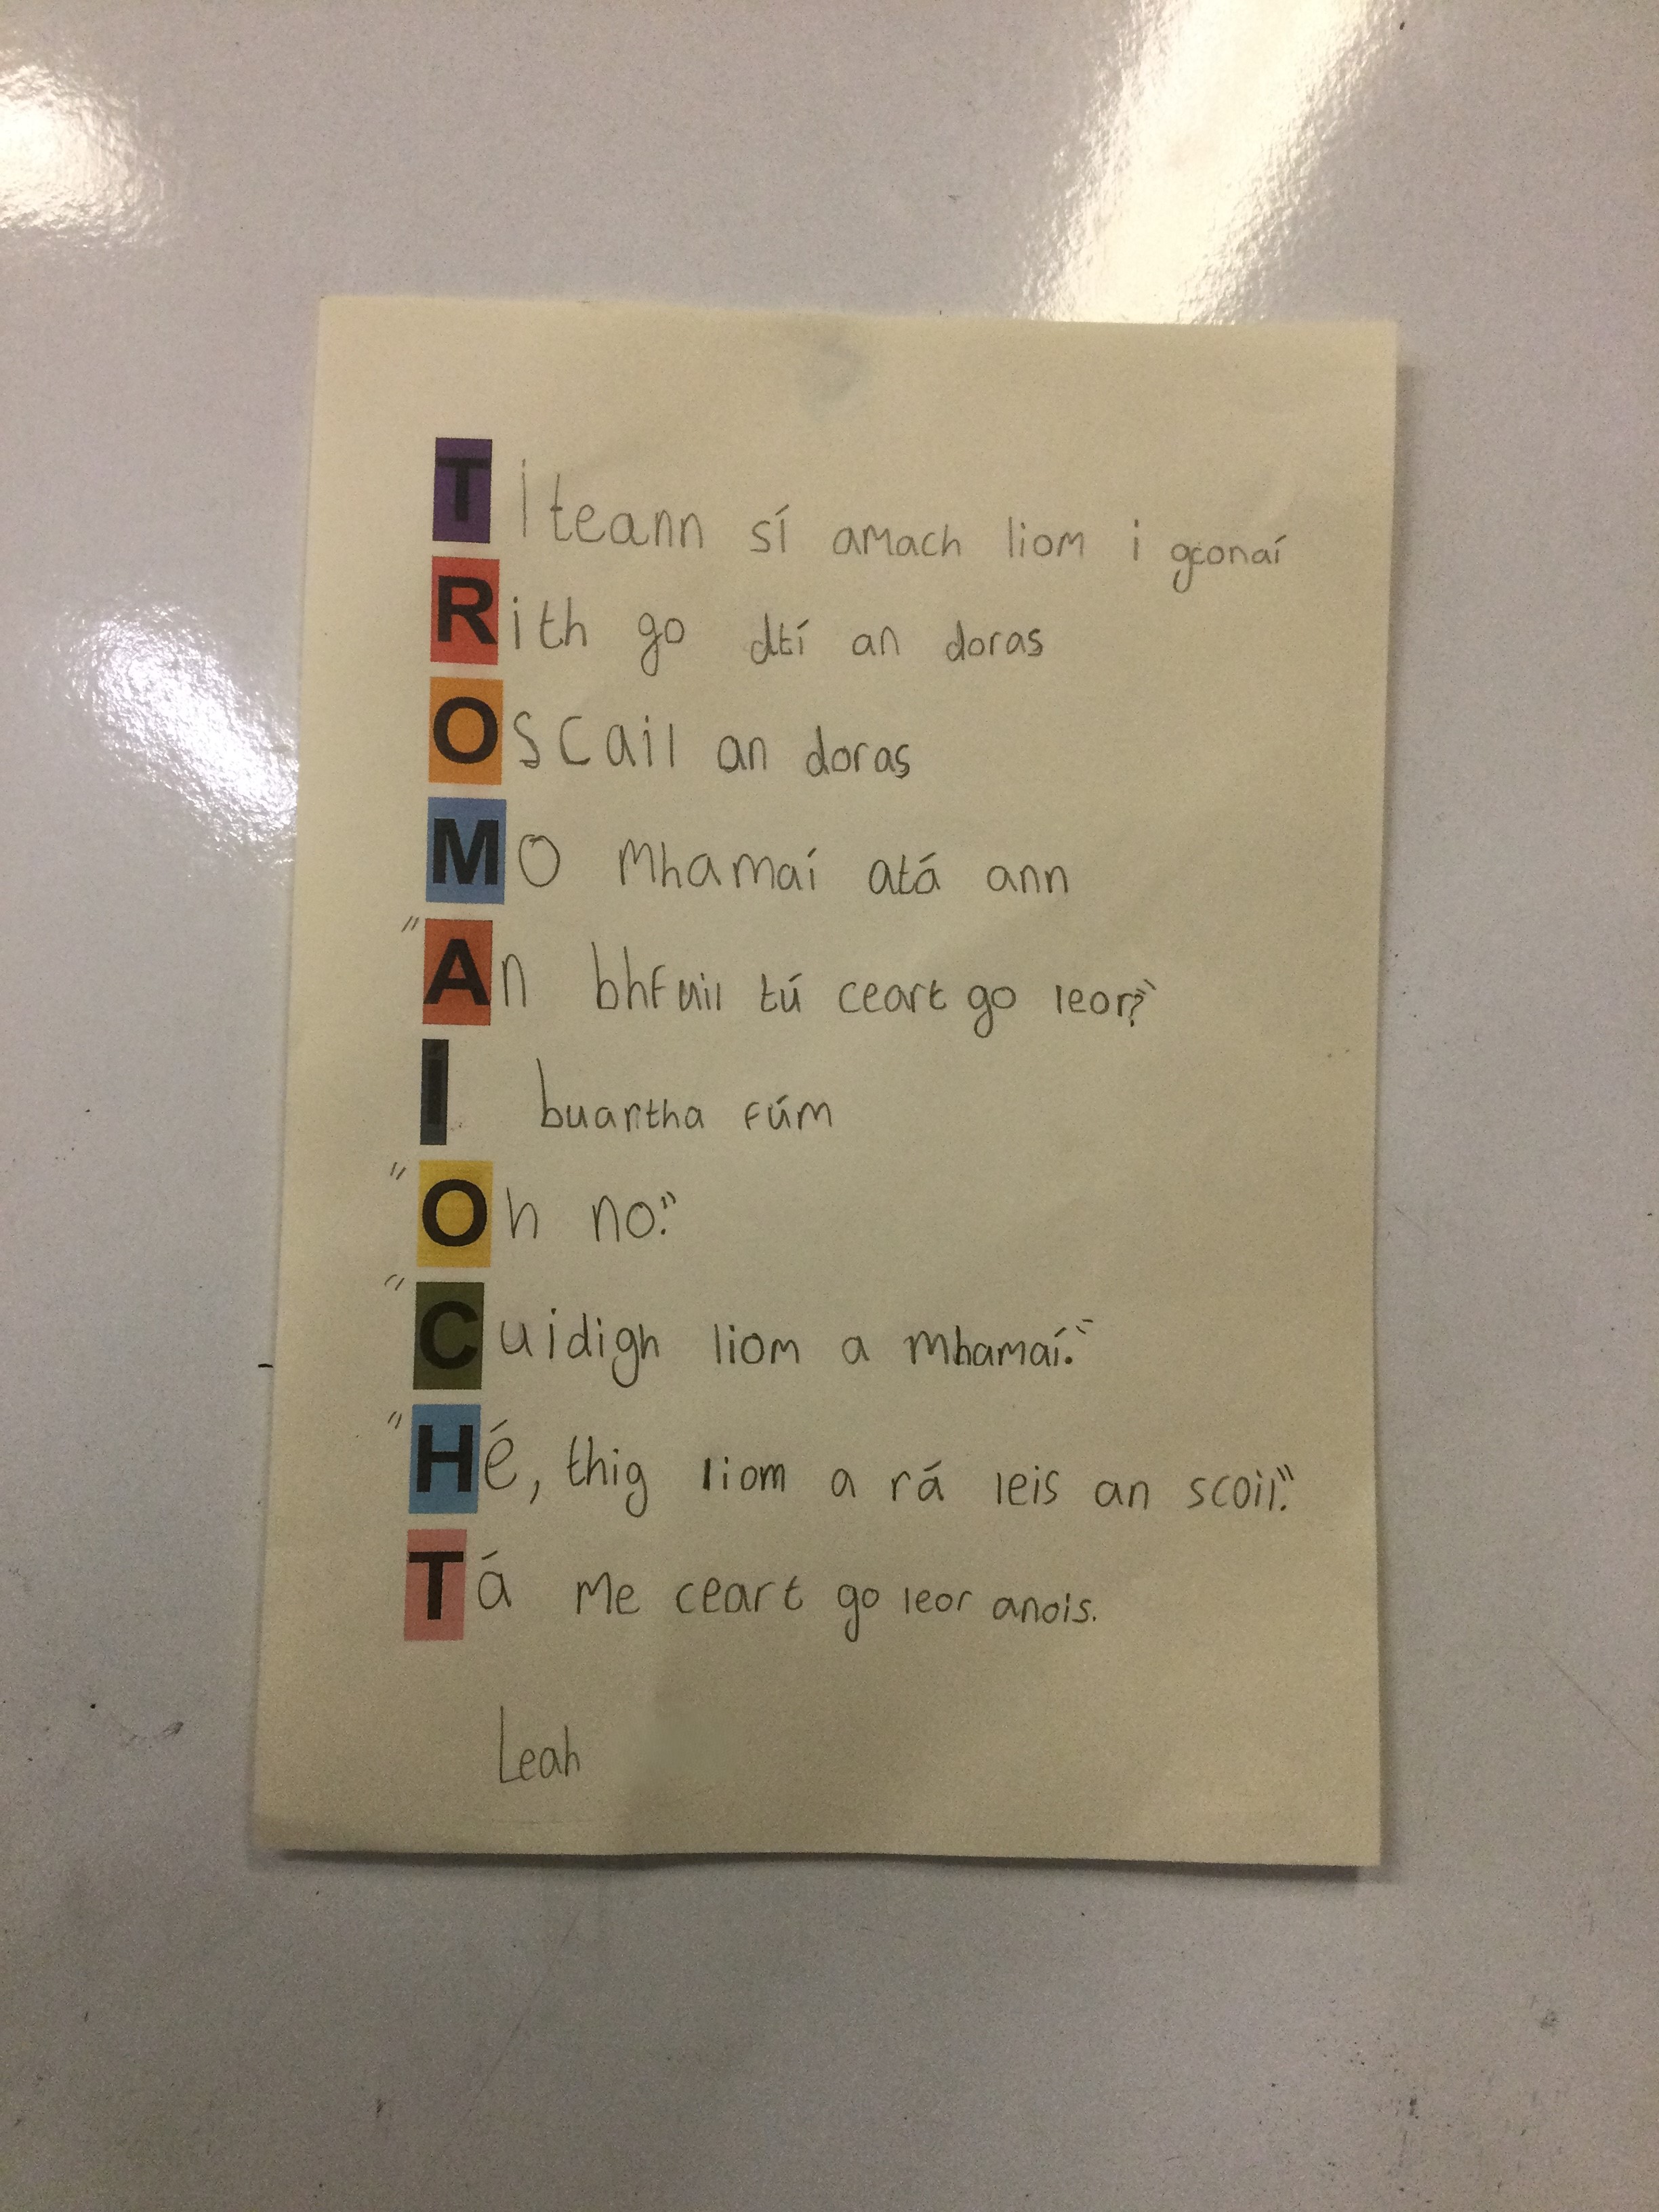 Titeann sí amach liom i gconaí
Rith go dtí an doras
Oscail an doras
Mo Mhamaí atá ann
"An bhfuil tú ceart go leor?"
I buartha fúm
"Oh no."
"Cuidigh liom a mhamaí."
"Hé, thig liom a rá leis an scoil."
Tá me ceart go leor anois.
Leah